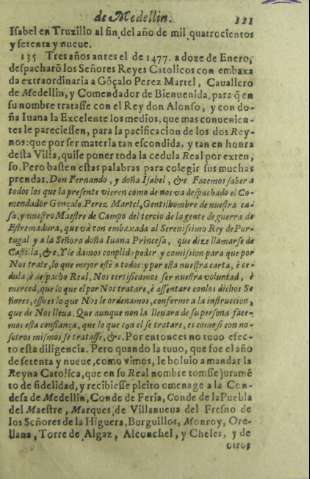 de Medellin. 121
Isabel en Truxillo al fin del año de mil quatrocientos
y setenta y nueue.
135 Tres años antes el de 1477. a doze de Enero,
despacharõ los Señores Reyes Catolicos con embaxa
da extraordinaria a Gõçalo Perez Martel, Cauallero
de Medellin, y Comendador de Bienuenida, para q̃ en
su nombre tratasse con el Rey don Alonso, y con do-
ña Iuana la Excelente los medios, que mas conuenien-
tes le pareciessen, para la pacificacion de los dos Rey-
nos: que por ser materia tan escondida, y tan en honra
desta Villa, quise poner toda la cedula Real por exten-
so. Pero basten estas palabras para colegir sus muchas
prendas. Don Fernando, y doña Isabel, &c. Fazemos saber a
todos los que la presente vieren como de nueuo despachado el Co-
mendador Gonçalo Perez Martel, Gentilhombre de nuestra ca-
sa, y nuestro Maestre de Campo del tercio de la gente de guerra de
Estremadura, que va con embaxada al Serenissimo Rey de Por-
tugal y a la Señora doña Iuana Princesa, que dize llamarse de
Castilla, &c. Y le damos complido poder y comission para que por
Nos trate, lo que mejor esté a todos; y por esta nuestra carta, è ce-
dula, è despacho Real, Nos certificamos ser nuestra voluntad, è
merced, que lo que el por Nos tratare, è assentare con los dichos Se
ñores, esso es lo que Nos le ordenamos, conforme a la instruccion,
que de Nos lleua. Que aunque non la lleuara de su persona faze-
mos esta confiança, que lo que con el se tratare, es como si con no-
sotros mismos se tratasse, &c. Por entonces no tuuo efec-
to esta diligencia. Pero quando la tuuo, que fue el año
de setenta y nueue, como vimos, le boluio a mandar la
Reyna Catolica, que en su Real nombre tomasse juramẽ
to de fidelidad, y recibiesse pleito omenage a la Con-
desa de Medellin, Conde de Feria, Conde de la Puebla
del Maestre, Marques de Villanueua del Fresno de
los Señores de la Higuera, Burguillos, Monroy, Ore-
llana, Torre de Algaz, Alconchel, y Cheles, y de
otros